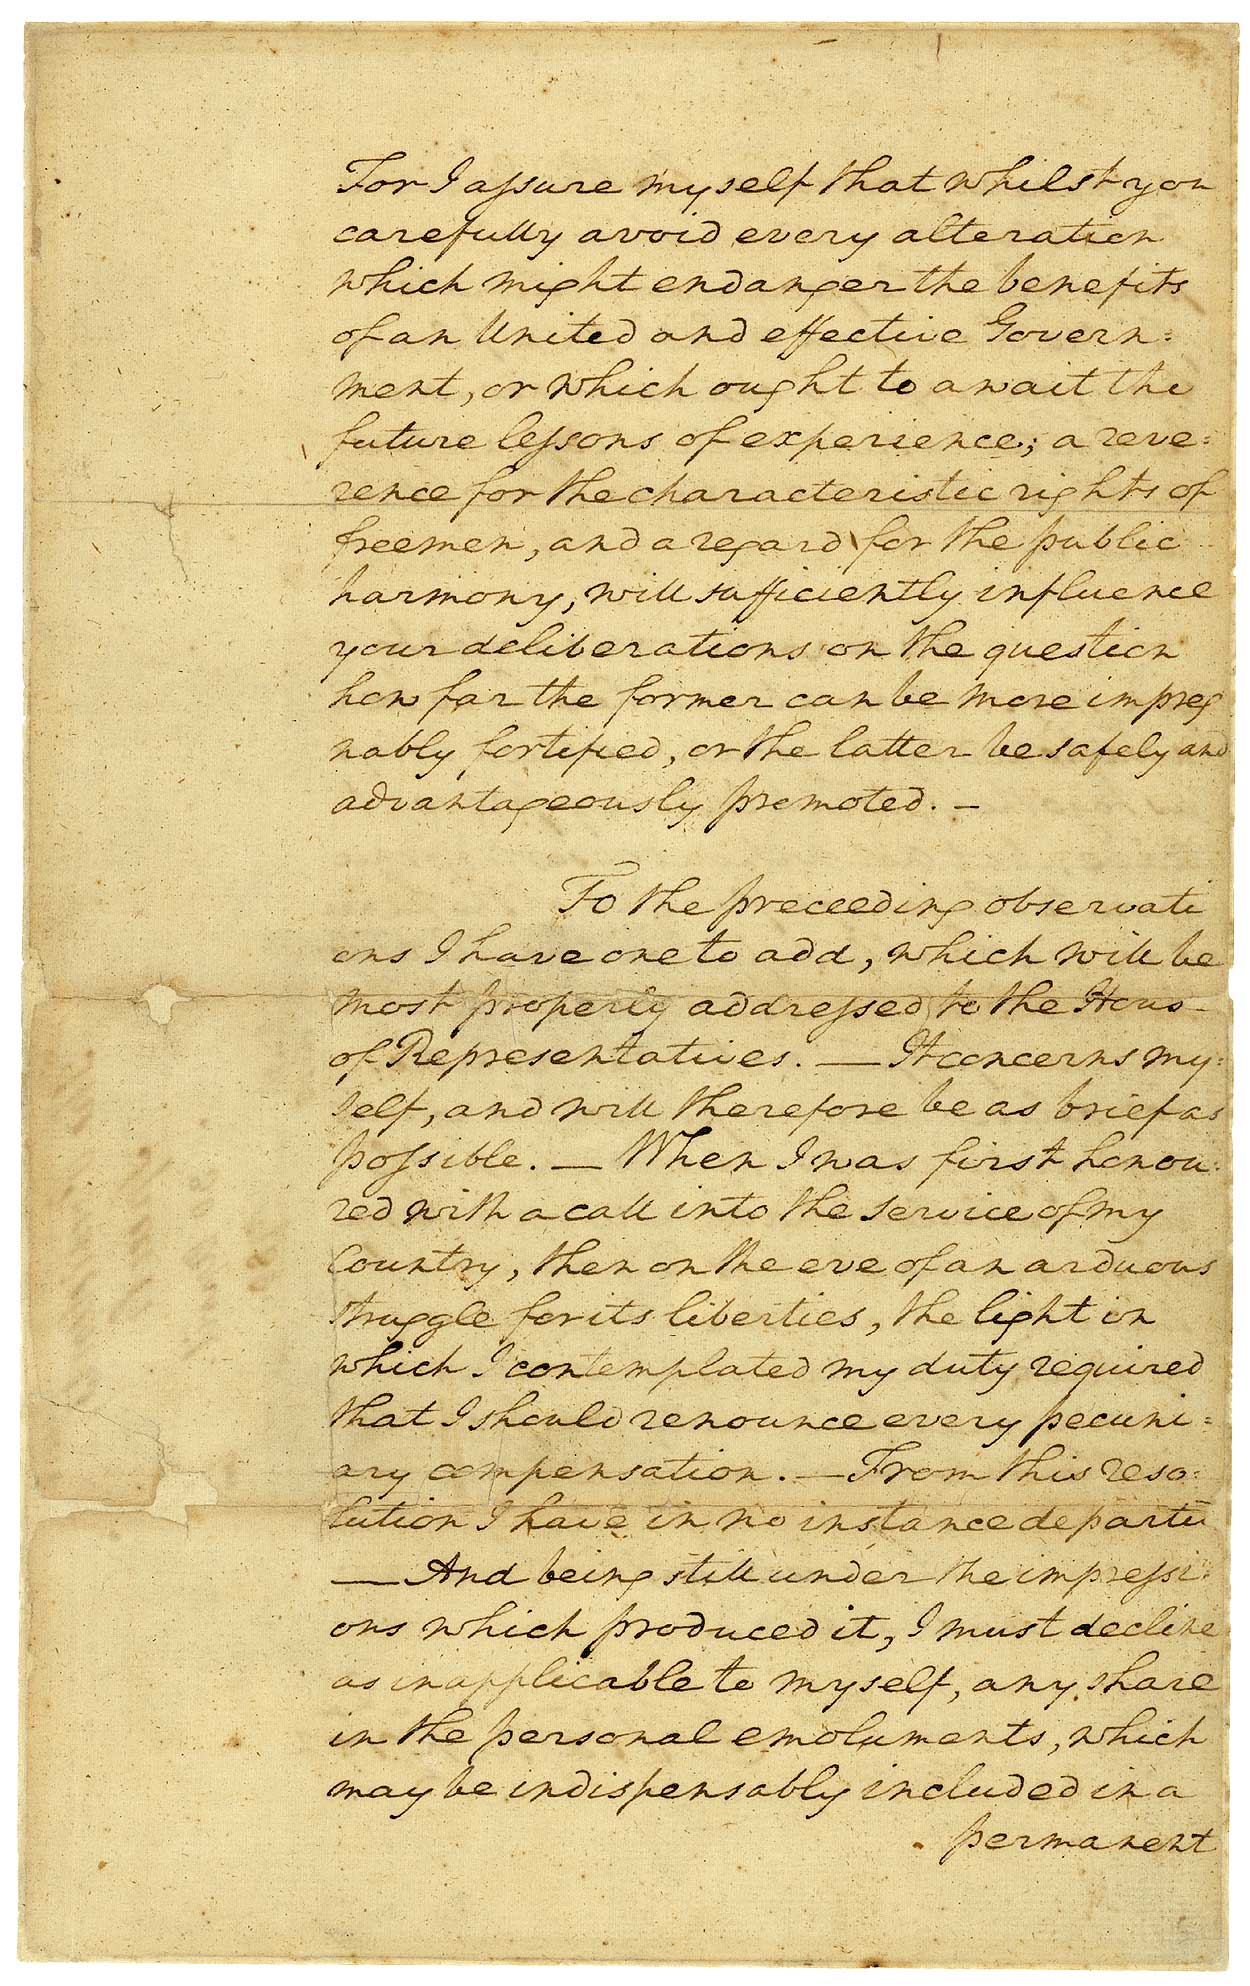 For I assure myself that whilst you
carefully avoid every alteration
which might endanger the benefits
of an United and effective Govern=
ment, or which ought to await the
future lessons of experience; a reve=
rence for the characteristic rights of
freemen, and a regard for the public
harmony, will sufficiently influence
your deliberations on the question
how far the former can be more impreg
nably fortified, or the latter be safely and
advantageously promoted. —
To the preceeding observati
ons I have one to add, which will be
most properly addressed to the Hous
of Representatives. — It concerns my=
self, and will therefore be as brief as
possible. — When I was first honou=
red with a call into the service of my
Country, then on the eve of an arduous
struggle for its liberties, the light in
which I contemplated my duty required
that I should renounce every pecuni=
ary compensation. — From this reso=
lution I have in no instance departe
— And being still under the impressi=
ons which produced it, I must decline
as inapplicable to myself, any share
in the personal emoluments, which
may be indispensably included in a
permanent